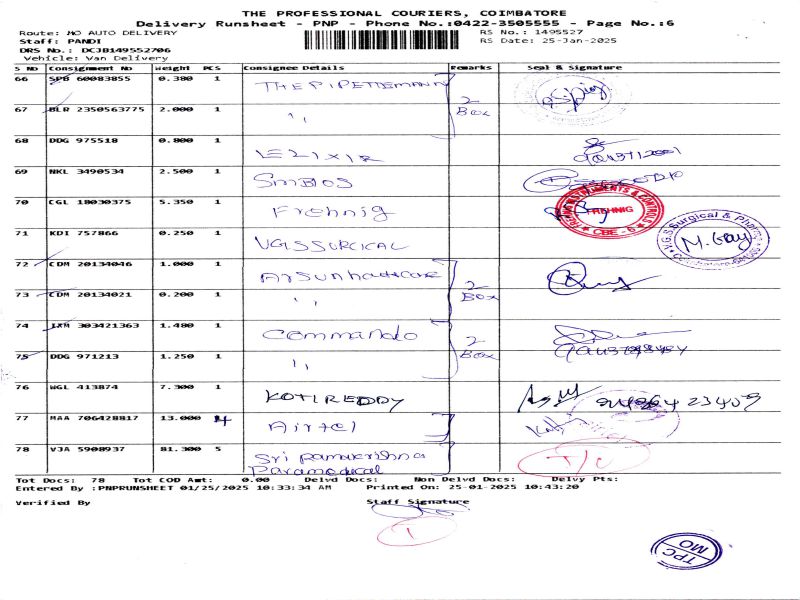 THE PROFESSIONAL COURIERS, COIMBATORE
Delivery Runsheet - PNP - Phone No.:0422-3505555 - Page No.:6
Route: MO AUTO DELIVERY RS No.: 1495527
Staff: PANDI RS Date: 25-Jan-2025
DRS No.: DCJB149552706
Vehicle: Van Delivery
S No Consignment No Weight PCS Consignee Details Remarks Seal & Signature
66 SPB 60083855 0.380 1
67 BLR 2350563775 2.000 1 ,, 2 Box
68 DDG 975518 0.800 1
69 NKL 3490534 2.500 1
70 CGL 18030375 5.350 1 Frehnig FREHNIG CBE - 6
71 KDI 757866 0.250 1 VGS SURGICAL V.G.S Surgical & M. Gay
72 CDM 20134046 1.000 1
73 CDM 20134021 0.200 1 ,, 2 Box
74 IXM 303421363 1.480 1 Commando
75 DDG 971213 1.250 1 ,, 2 Box
76 WGL 413874 7.300 1 KOTI REDDY
77 MAA 706428817 13.000 4 Airtel
78 VJA 5908937 81.300 5 Sri Ramakrishna
Paramedical T/C
Tot Docs: 78 Tot COD Amt: 0.00 Delvd Docs: Non Delvd Docs: Delvy Pts:
Entered By :PNPRUNSHEET 01/25/2025 10:33:34 AM Printed On: 25-01-2025 10:43:20
Verified By Staff Signature
T
TPC
MO